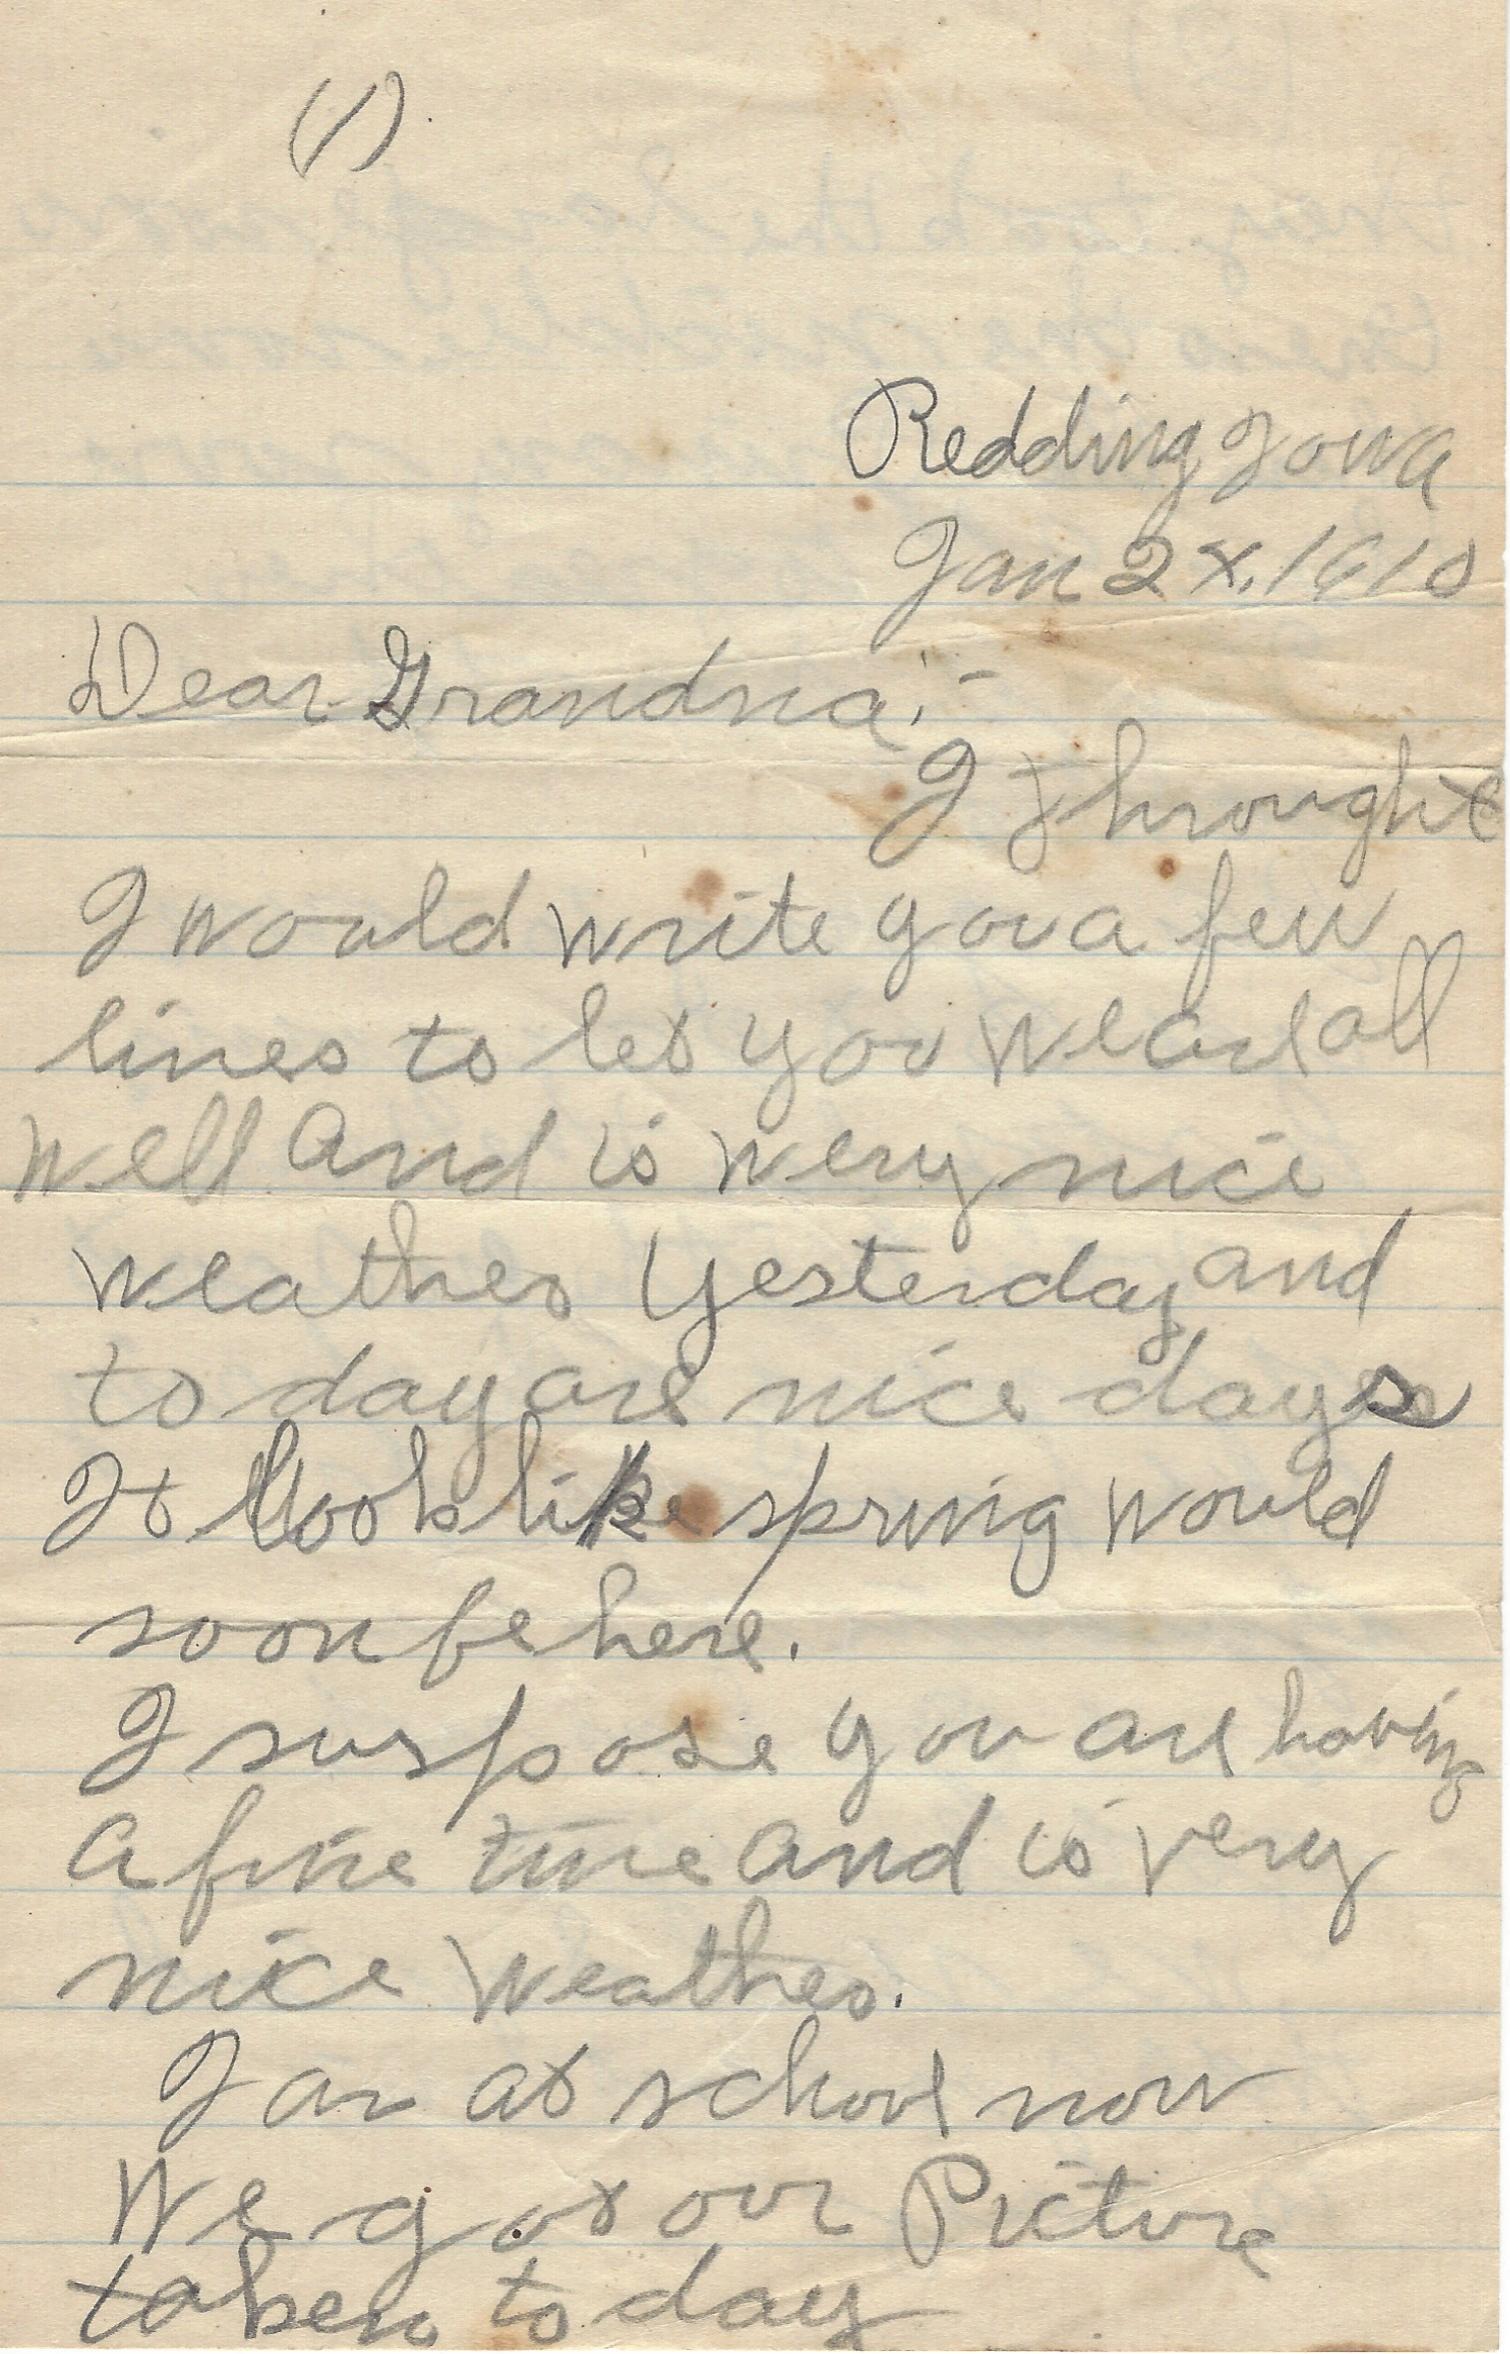 (1).
Redding Iowa
Jan 2 x. 1910
Dear Grandma:-
I throught
I would write you a few
lines to let you we are all
well and is wery nice
weather yesterday and
to day are nice days
It look like spring would
soon be here.
I suspose you are having
a fine time and is very
nice weather.
I am at school now
We got our Picture
taken to day